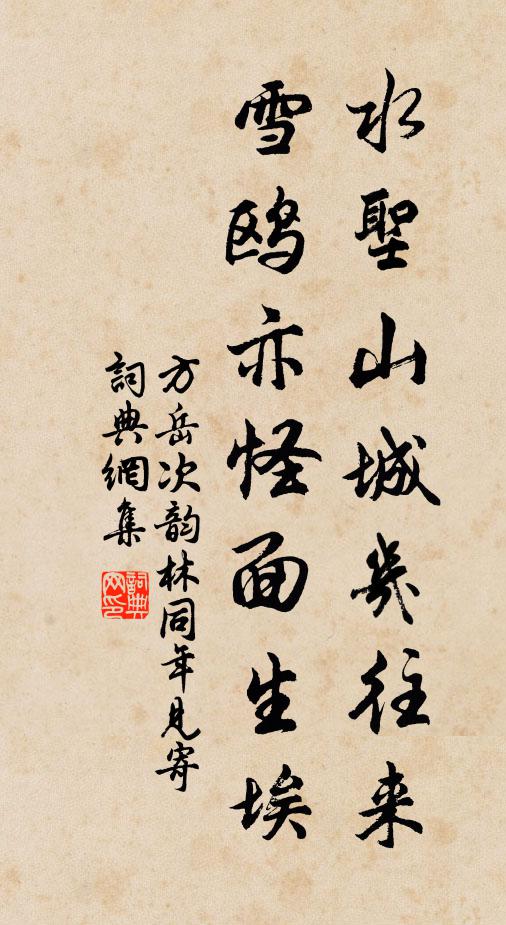 水聖山城幾往来
雪鸥亦怪面生埃
方岳次韵林同年見寄
詞典網集
詞典网印